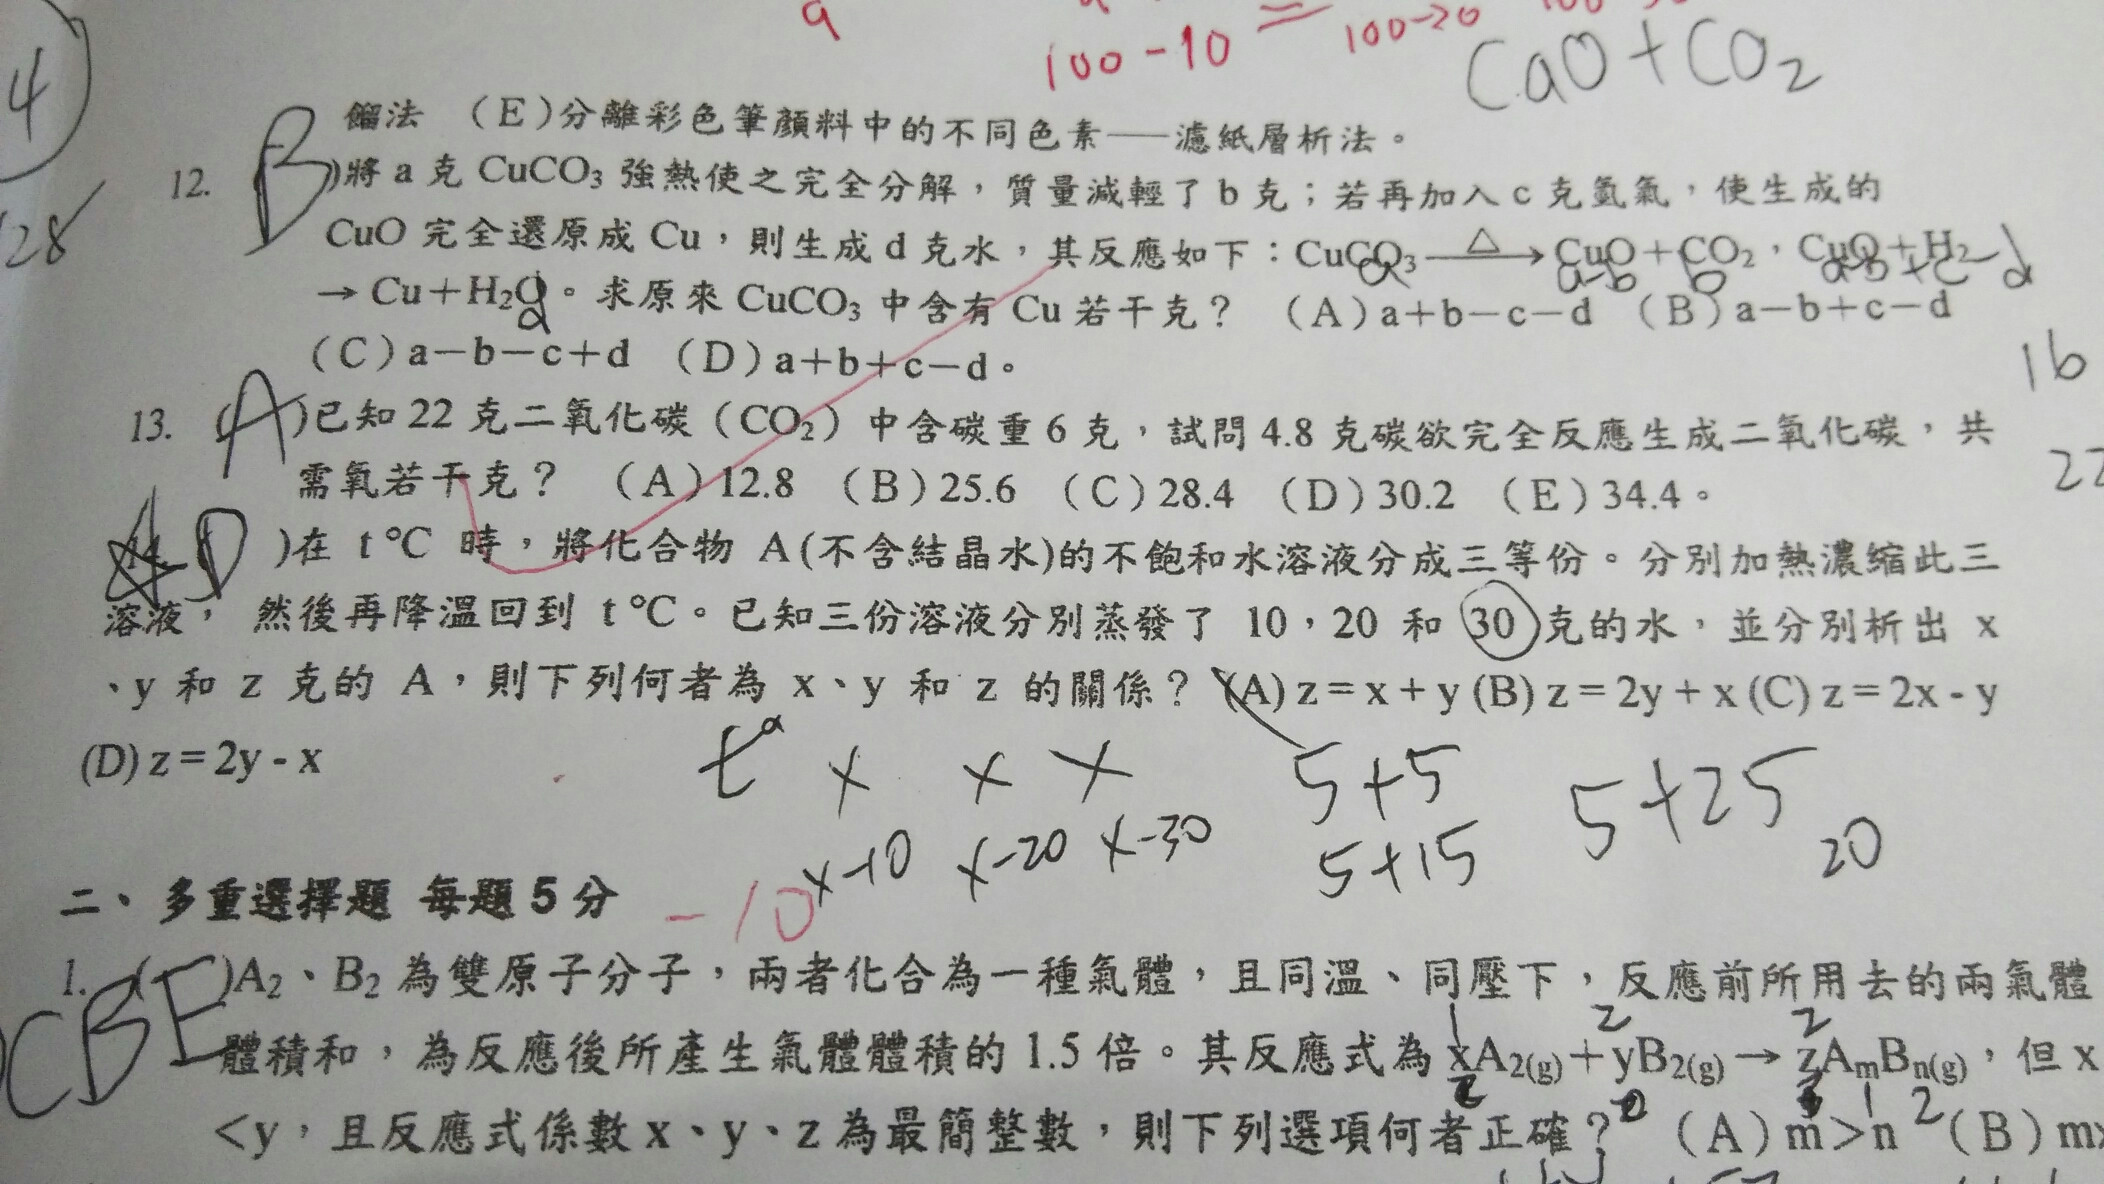 a
100-10 = 100-20
CaO+CO₂
4
餾法 (E)分離彩色筆顏料中的不同色素——濾紙層析法。
12. B )將 a 克 CuCO₃ 強熱使之完全分解,質量減輕了 b 克;若再加入 c 克氫氣,使生成的
28
CuO 完全還原成 Cu,則生成 d 克水,其反應如下:CuCO₃ —△→ CuO+CO₂,CuO+H₂
a a-b b a-b +c -d
→ Cu+H₂O。求原來 CuCO₃ 中含有 Cu 若干克? (A)a+b-c-d (B)a-b+c-d
d
(C)a-b-c+d (D)a+b+c-d。
16
13. (A )已知 22 克二氧化碳(CO₂)中含碳重 6 克,試問 4.8 克碳欲完全反應生成二氧化碳,共
22
需氧若干克? (A)12.8 (B)25.6 (C)28.4 (D)30.2 (E)34.4。
14. D )在 t℃ 時,將化合物 A(不含結晶水)的不飽和水溶液分成三等份。分別加熱濃縮此三
溶液, 然後再降溫回到 t℃。已知三份溶液分別蒸發了 10,20 和 30 克的水,並分別析出 x
、y 和 z 克的 A,則下列何者為 x、y 和 z 的關係? (A) z = x + y (B) z = 2y + x (C) z = 2x - y
(D) z = 2y - x
x x x 5+5 5+25
x-10 x-20 x-30 5+15 20
二、多重選擇題 每題 5 分 -10
1. ( )A₂、B₂ 為雙原子分子,兩者化合為一種氣體,且同溫、同壓下,反應前所用去的兩氣體
CBE
1 2 2
體積和,為反應後所產生氣體體積的 1.5 倍。其反應式為 xA₂₍g₎+yB₂₍g₎→zAₘBₙ₍g₎,但 x
1 2
<y,且反應式係數 x、y、z 為最簡整數,則下列選項何者正確? (A)m>n (B)m